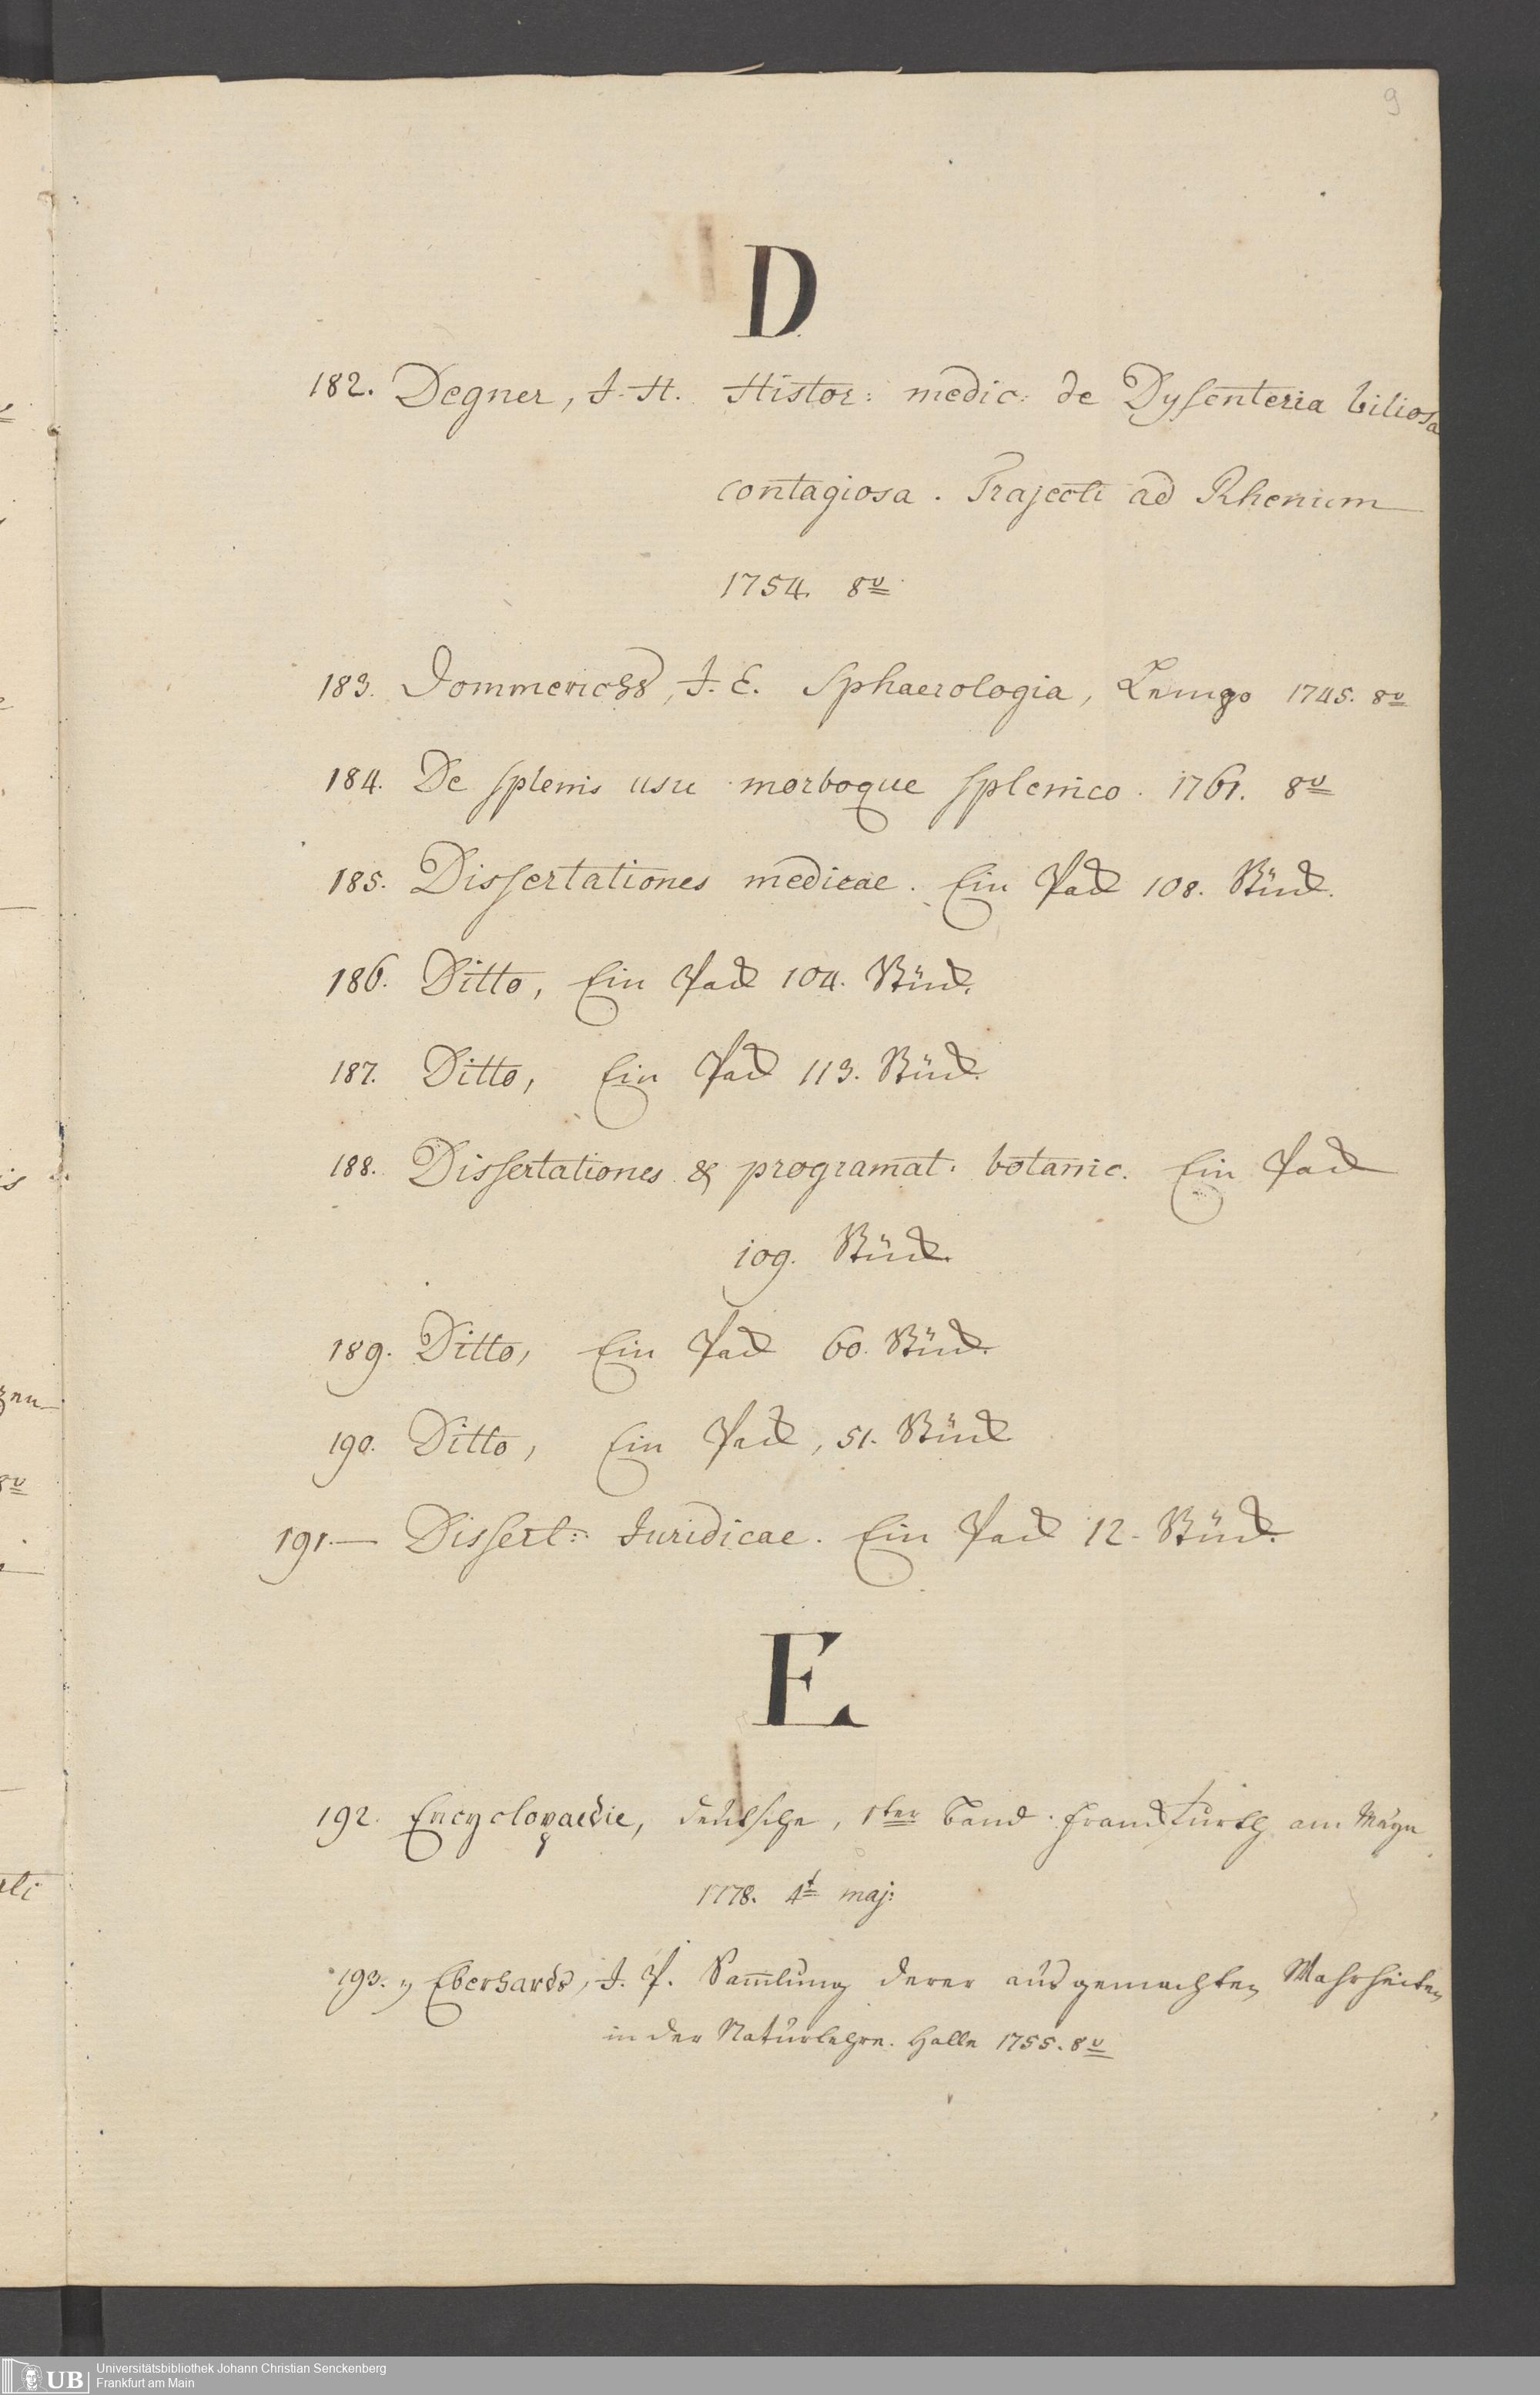 9
D
182. Degner, J. H. Histor: medic: de Dysenteria biliosa
contagiosa. Trajecti ad Rhenum
1754. 8v
183. Dommerichs, J. E. Sphaerologia, Lemgo 1745. 8v
184. De splenis usu morboque splenico. 1761. 8v
185. Dissertationes medicae. Ein Pack 108. Stück.
186. Ditto, Ein Pack 104. Stück.
187. Ditto, Ein Pack 113. Stück.
188. Dissertationes & programat: botanic. Ein Pack
109. Stück.
189. Ditto, Ein Pack 60. Stück.
190. Ditto, Ein Pack, 51. Stück
191.— Dissert: Juridicae. Ein Pack 12. Stück.
E
192. Encyclopaedie, deutsche, 1ter Band. Franckfurth am Mayn
1778. 4t maj:
193. Eberhards, J. P. Sammlung derer ausgemachten Wahrheiten
in der Naturlehre. Halle 1755. 8v
UB Universitätsbibliothek Johann Christian Senckenberg
Frankfurt am Main